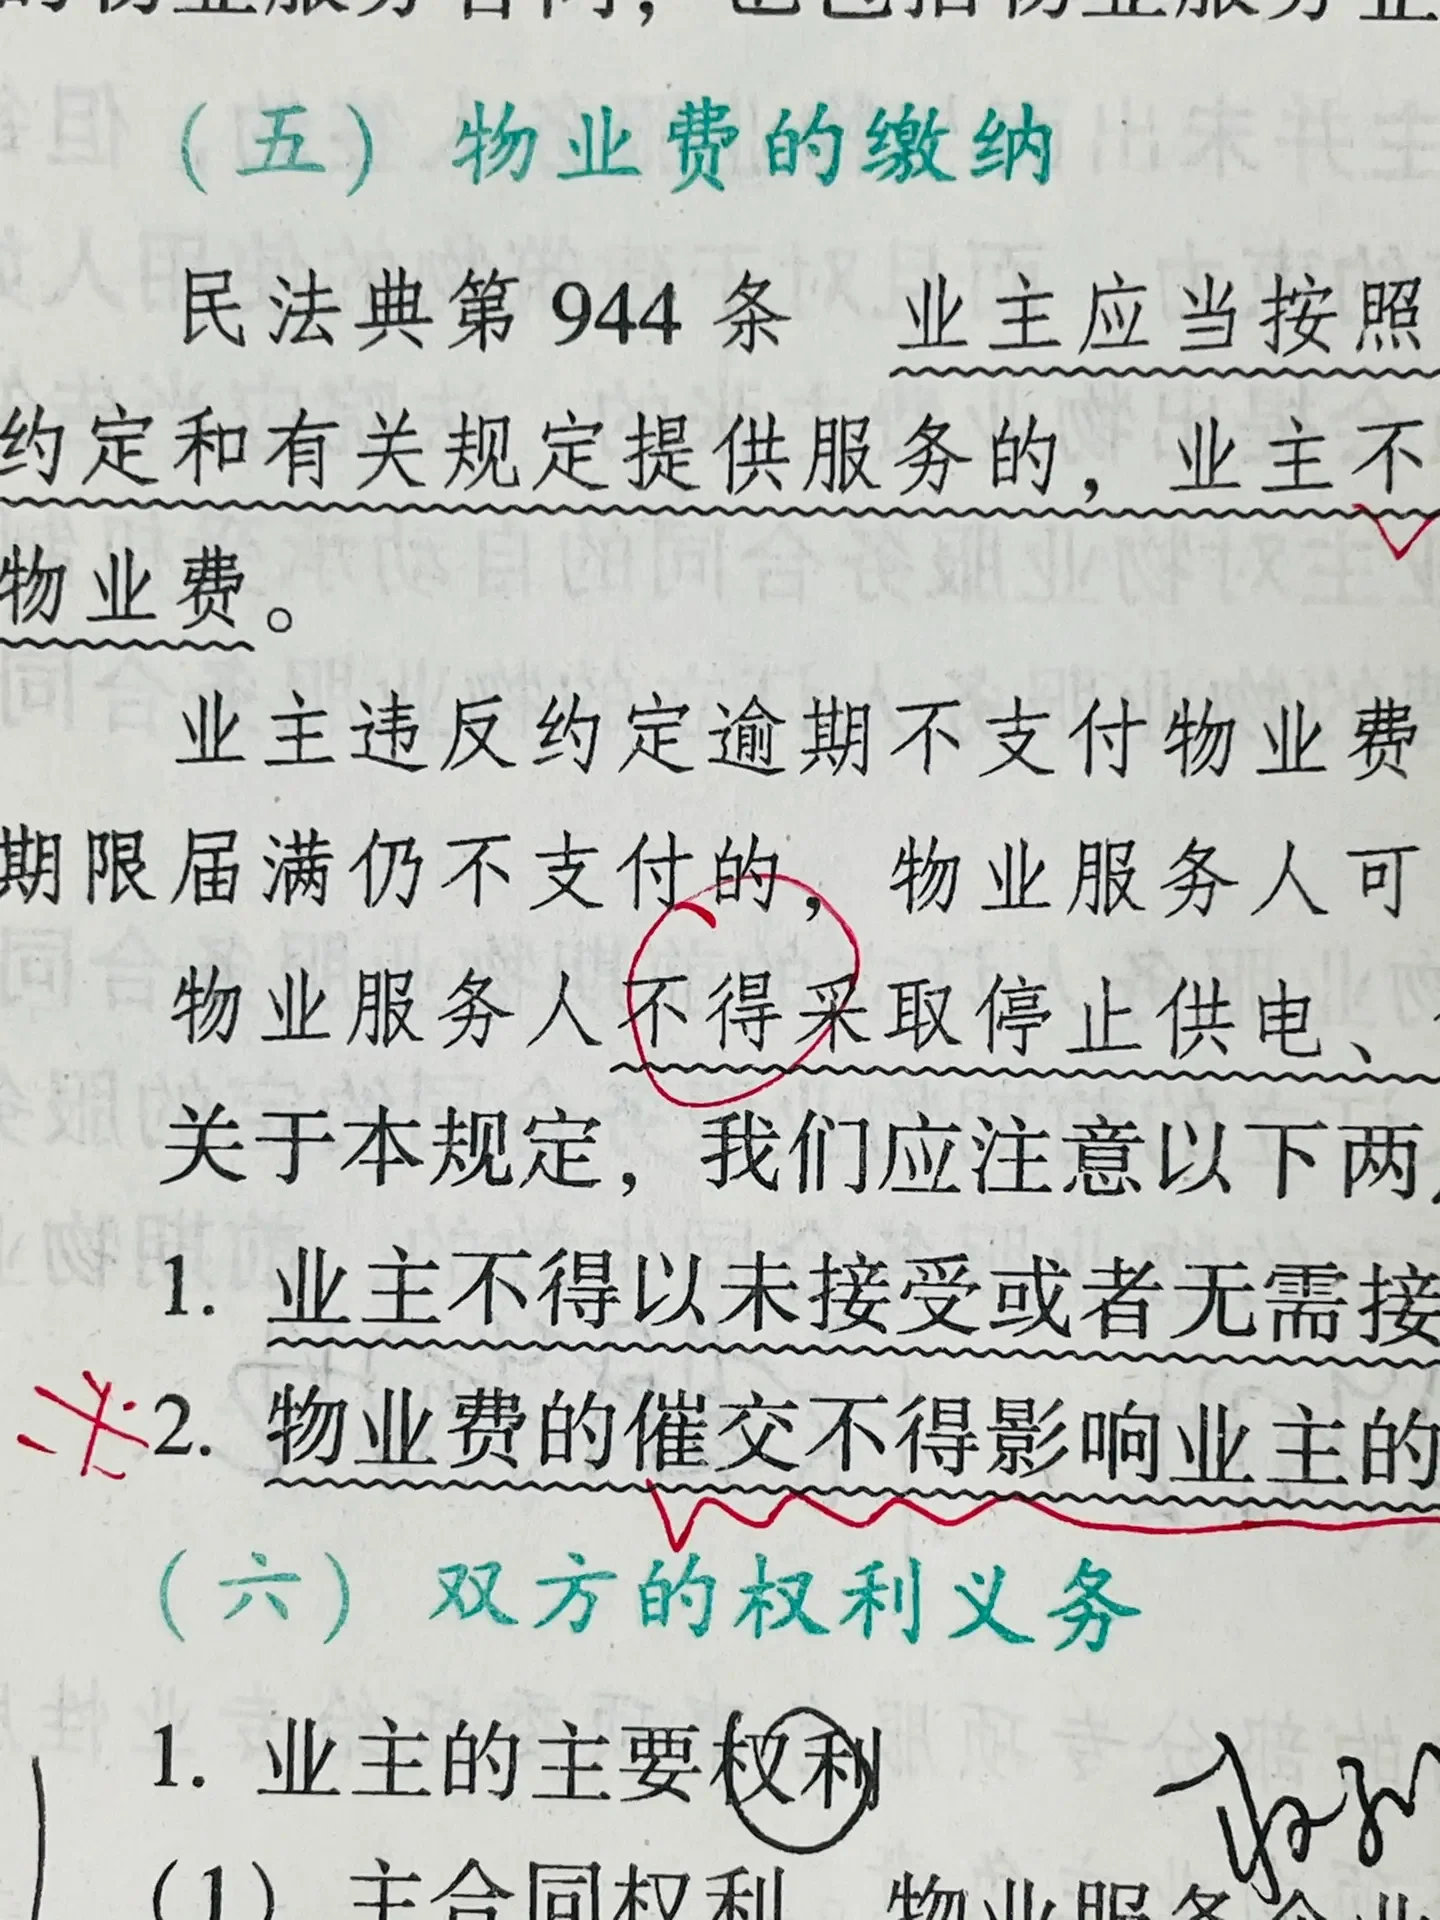 的物业服务合同，也包括物业服务企业
（五）物业费的缴纳
民法典第 944 条 业主应当按照
约定和有关规定提供服务的，业主不
物业费。
业主违反约定逾期不支付物业费
期限届满仍不支付的，物业服务人可
物业服务人不得采取停止供电、
关于本规定，我们应注意以下两
1. 业主不得以未接受或者无需接
2. 物业费的催交不得影响业主的
（六）双方的权利义务
1. 业主的主要权利
（1）主合同权利 物业服务企业